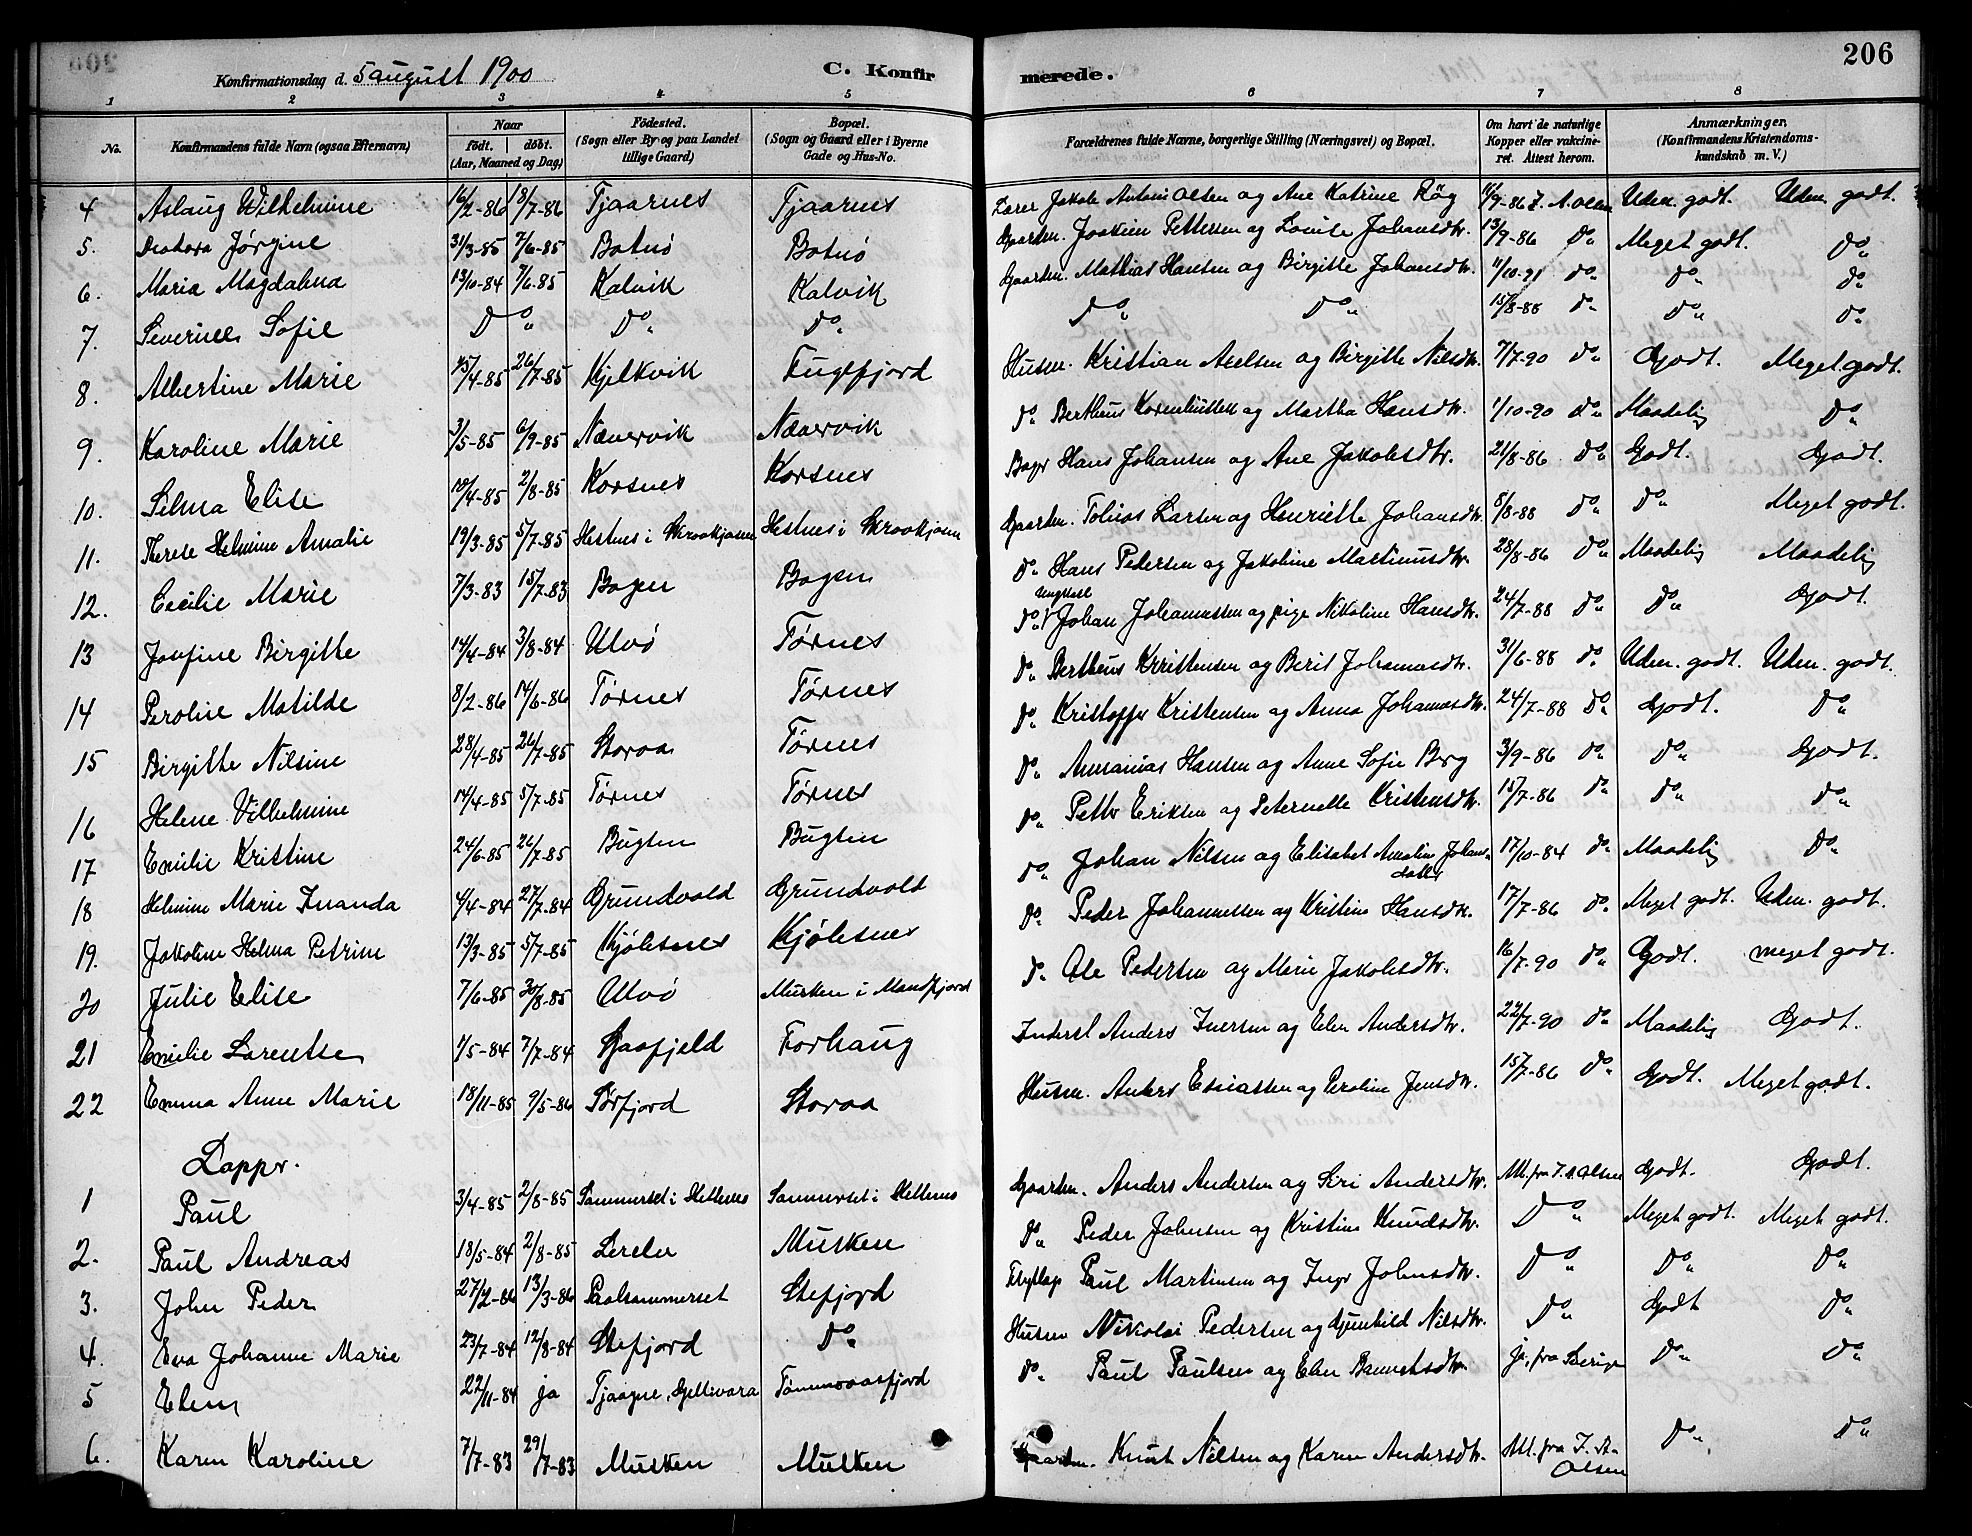 206
Konfirmationsdag d. 5 august 1900
C. Konfirmerede.
1 2 3 4 5 6 7 8
No. Konfirmandens fulde Navn (ogsaa Efternavn) Naar født. døbt. (Aar, Maaned og Dag) Fødested. (Sogn eller By og paa Landet tillige Gaard) Bopæl. (Sogn og Gaard eller i Byerne Gade og Hus-No. Forældrenes fulde Navne, borgerlige Stilling (Næringsvei) og Bopæl. Om havt de naturlige Kopper eller vakcineret. Attest herom. Anmærkninger. (Konfirmandens Kristendomskundskab m. V.)
4 Aslaug Wilhelmine 16/2-86 18/7-86 Tjaarnes Tjaarnes Lærer Jakob Antoni Olsen og Ane Katrine Røg 11/9-86 J. A. Olsen Udm. godt. Udm. godt.
5. Jørgine 31/3-85 7/6-85 Botnø Botnø Gaardm. Joakim Pettersen og Lovise Johansdtr. 13/9-86 Do Meget godt. Do
6. Maria Magdalena 13/10-84 7/6-85 Kalvik Kalvik Gaardm. Mathias Hansen og Birgitte Johansdtr. 11/10-91 Do Do Do
7. Severine Sofie Do Do Do Do Do 15/8-88 Do Do Do
8. Albertine Marie 25/4-85 26/7-85 Kjelkvik Fuglfjord Husm. Kristian Axelsen og Birgitte Nilsdtr. 7/7-90 Do Godt. Meget godt.
9. Karoline Marie 3/5-85 6/9-85 Nævervik Nævervik Do Bertheus Korneliussen og Martha Hansdtr. 1/10-90 Do Maadelig Do
10. Selma Elise 10/4-85 2/8-85 Korsnes Korsnes Hans Johansen og Ane Jakobsdtr. 21/8-86 Do Godt. Godt.
11. Therese Helmine Amalie 19/3-85 5/7-85 Hestnes i Skrovkjosen Hestnes i Skrovkjosen Gaardm. Tobias Larsen og Henriette Johansdtr. 8/8-88 Do Do Meget godt.
12. Cecilie Marie 7/3-83 15/7-83 Bogen Bogen Do Hans Pedersen og Jakobine Martinusdtr. 28/8-86 Do Maadelig Maadelig
13 Josefine Birgitte 14/4-84 3/8-84 Ulvø Tørnes Do ungkarl Johan Johannessen og pige Nikoline Hansdtr. 24/7-88 Do Do Godt.
14 Peroline Matilde 8/2-86 14/6-86 Tørnes Tørnes Do Bertheus Kristensen og Berit Johannesdtr. 31/6-88 Do Udm. godt. Udm. godt.
15 Birgitte Nilsine 28/4-85 26/7-85 Storaa Tørnes Do Kristoffer Kristensen og Anna Johannesdtr. 24/7-88 Do Godt. Do
16 Helene Vilhelmine 14/4-85 5/7-85 Tørnes Tørnes Do Annanias Hansen og Anne Sofie Berg 3/9-86 Do Do Godt.
17 Emilie Kristine 24/6-85 26/7-85 Bugten Bugten Do Petter Eriksen og Peternelle Kristensdtr. 15/7-86 Do Do Do
18 Helmine Marie Inanda 4/4-84 27/7-84 Grundvold Grundvold Do Johan Nilsen og Elisabet Amalie Johansdatter 17/10-84 Do Maadelig Do
19. Jakobine Helma Petrine 13/3-85 5/7-85 Kjølesnes Kjølesnes Do Peder Johannessen og Kristine Hansdtr. 17/7-86 Do Meget godt. Udm. godt.
20 Julie Elise 7/6-85 30/8-85 Ulvø Musken i Mandfjord Do Ole Pedersen og Marie Jakobsdtr. 16/7-90 Do Godt. meget godt.
21 Emilie Larentse 1/5-84 7/7-84 Forhaug Inderst Anders Iversen og Elen Andersdtr. 22/7-90 Do Maadelig Godt.
22 Emma Anne Marie 18/11-85 9/5-86 Tørfjord Storaa Husm. Anders Esaiassen og Peroline Jensdtr. 15/7-86 Do Godt. Meget godt.
Lapper.
1 Paul 3/4-85 2/8-85 Sommerset i Hellenes Sommerset i Hellenes Gaardm. Anders Andersen og Siri Andersdtr. Att. fra J. A. Olsen Godt. Godt.
2. Paul Andreas 18/5-84 2/8-85 Musken Do Peder Johnsen og Kristine Knudsdtr. Do Meget godt. Meget godt.
3. John Peder 27/2-86 13/3-86 Paalsommerset Stefjord Flytlap Paul Martinsen og Inger Johnsdtr. Do Do Do
4. Eva Johanne Marie 23/7-84 12/8-84 Stefjord Do Husm Nikolai Pedersen og Gunhild Nilsdtr. Do Godt Do
5 Elen 22/11-84 ja Tjaagne, Gellivara Tømmeraasfjord Do Paul Paulsen og Elen Bannetsdtr. ja, fra Sverige Do Do
6. Karen Karoline 7/7-83 29/7-83 Musken Musken Gaardm. Knut Nilsen og Karen Andersdtr. Att. fra J. A. Olsen Do Do